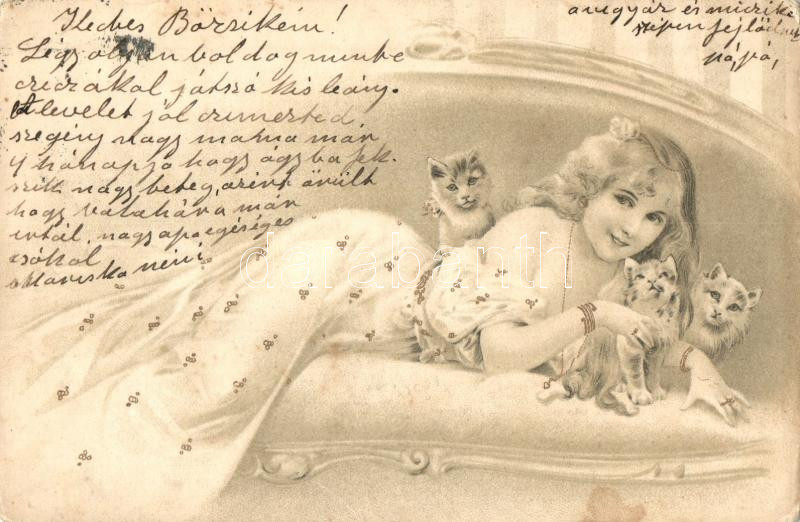 Kedves Börzsikém!
Légy olyan boldog mint e
cziczákal játszó kis leány.
A levelet jól czimezted
szegény nagy mama már
4 hónapja hogy ágyba fek-
szik nagy beteg, azért örült
hogy valahára már
irtál. nagyapa egéséges
csókol
Mariska néni
a ugyár és miczike
szépen fejlődnek
pá, pá,
darabanth